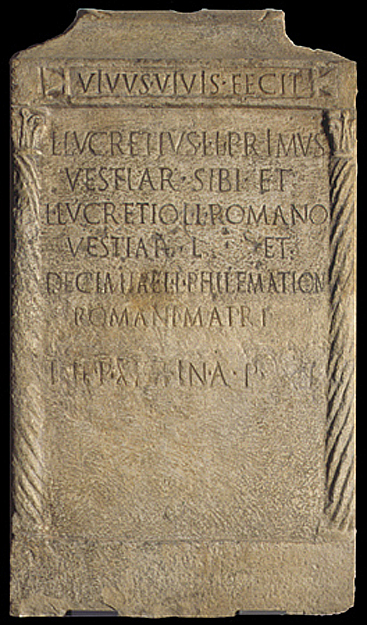 VIVVS·VIVIS·FECIT
L·LVCRETIVS·L·L·PRIMVS
VESTIAR·SIBI·ET
L·LVCRETIO·L·L·ROMANO
VESTIAR·L ET·
DECIAI PHILEMATION
ROMANI·MATRI
IN·A·P